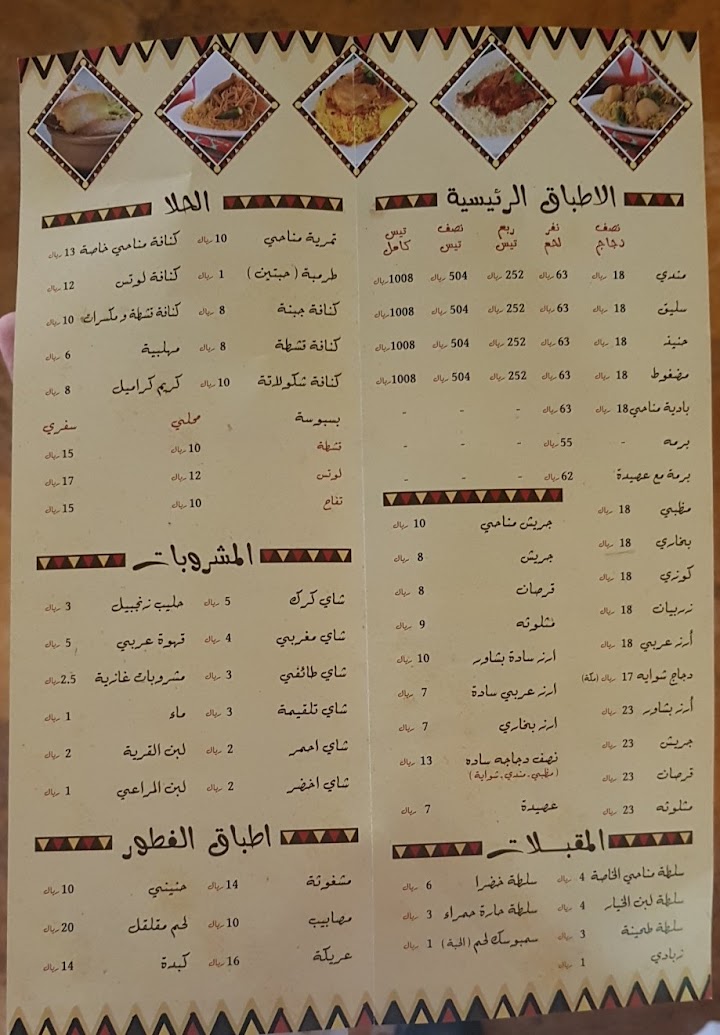 الاطباق الرئيسية
نصف دجاج نفر لحم ربع تيس نصف تيس تيس كامل
مندي 18 ريال 63 ريال 252 ريال 504 ريال 1008 ريال
سليق 18 ريال 63 ريال 252 ريال 504 ريال 1008 ريال
حنيذ 18 ريال 63 ريال 252 ريال 504 ريال 1008 ريال
مضغوط 18 ريال 63 ريال 252 ريال 504 ريال 1008 ريال
بادية مناحي 18 ريال 63 ريال - - -
برمه - 55 ريال - - -
برمة مع عصيدة 62 ريال - - -
مظبي 18 ريال
بخاري 18 ريال
كوزي 18 ريال
زربيان 18 ريال
أرز عربي 18 ريال
دجاج شوايه 17 ريال (مكة)
أرز بشاور 23 ريال
جريش 23 ريال
قرصان 23 ريال
مثلوثه 23 ريال
جريش مناحي 10 ريال
جريش 8 ريال
قرصان 8 ريال
مثلوثه 9 ريال
ارز سادة بشاور 10 ريال
ارز عربي سادة 7 ريال
ارز بخاري 7 ريال
نصف دجاجه ساده 13 ريال
(مظبي . مندي . شواية)
عصيدة 7 ريال
المقبلات
سلطة مناحي الخاصة 4 ريال سلطة خضرا 6 ريال
سلطة لبن الخيار 4 ريال سلطة حارة حمراء 3 ريال
سلطة طحينة 3 ريال سمبوسك لحم (الحبة) 1 ريال
زبادي 1 ريال
الحلا
تمرية مناحي 10 ريال كنافة مناحي خاصة 13 ريال
طرمبة (حبتين) 1 ريال كنافة لوتس 12 ريال
كنافة جبنة 8 ريال كنافة قشطة و مكسرات 10 ريال
كنافة قشطة 8 ريال مهلبية 6 ريال
كنافة شكولاتة 10 ريال كريم كراميل 8 ريال
بسبوسة محلي سفري
قشطة 10 ريال 15 ريال
لوتس 12 ريال 17 ريال
تفاح 10 ريال 15 ريال
المشروبات
شاي كرك 5 ريال حليب زنجبيل 3 ريال
شاي مغربي 4 ريال قهوة عربي 5 ريال
شاي طائفي 3 ريال مشروبات غازية 2.5 ريال
شاي تلقيمة 3 ريال ماء 1 ريال
شاي احمر 2 ريال لبن القرية 2 ريال
شاي اخضر 2 ريال لبن المراعي 1 ريال
اطباق الفطور
مشغوثة 14 ريال حنيني 10 ريال
مصابيب 10 ريال لحم مقلقل 20 ريال
عريكة 16 ريال كبدة 14 ريال